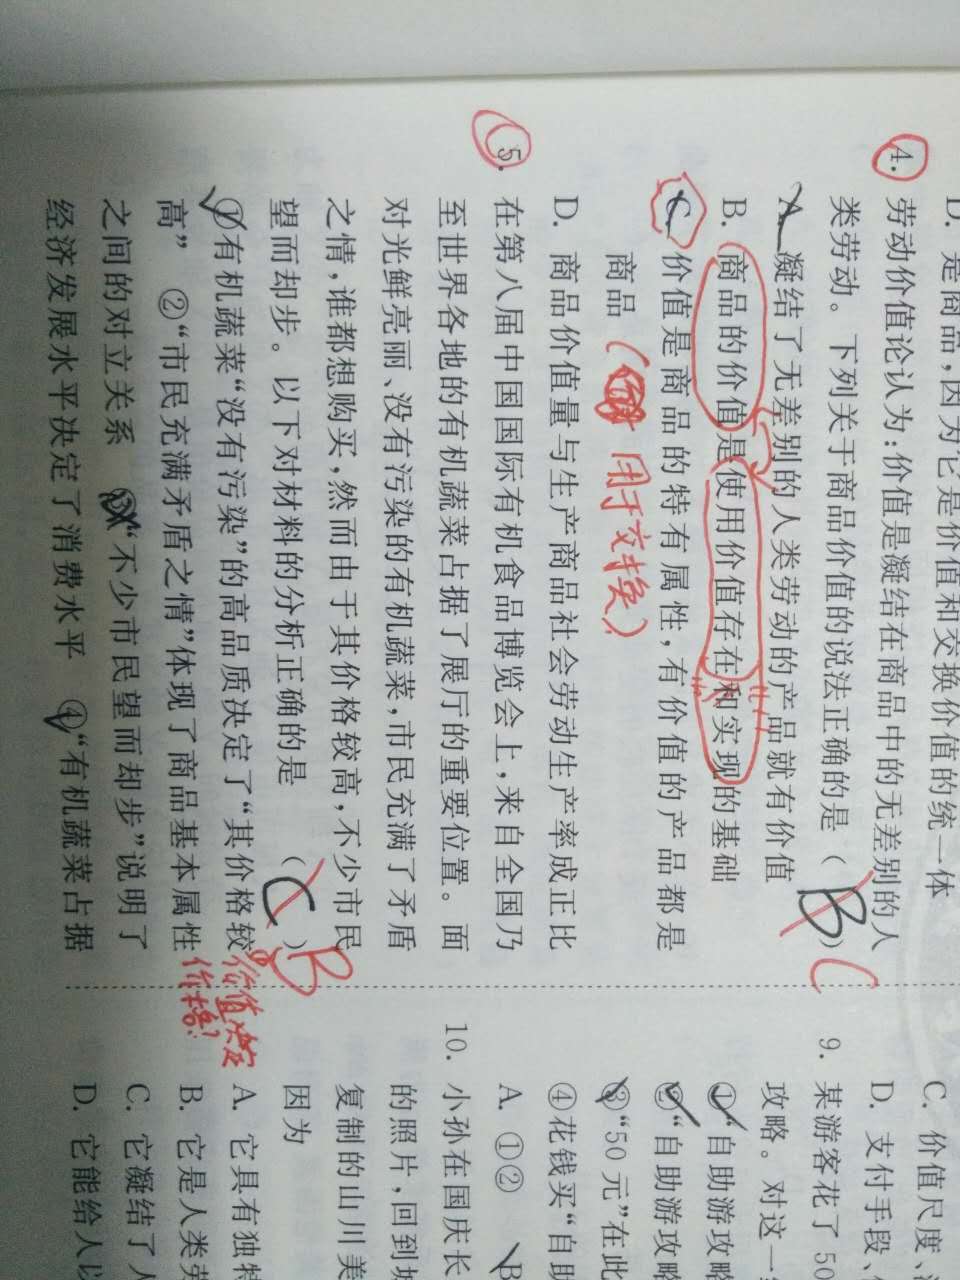 D. 是商品,因为它是价值和交换价值的统一体
4. 劳动价值论认为:价值是凝结在商品中的无差别的人
类劳动。下列关于商品价值的说法正确的是 ( B ) C
A. 凝结了无差别的人类劳动的产品就有价值
B. 商品的价值是使用价值存在和实现的基础
C. 价值是商品的特有属性,有价值的产品都是
商品 ( 用于交换)
D. 商品价值量与生产商品社会劳动生产率成正比
5. 在第八届中国国际有机食品博览会上,来自全国乃
至世界各地的有机蔬菜占据了展厅的重要位置。面
对光鲜亮丽、没有污染的有机蔬菜,市民充满了矛盾
之情,谁都想购买,然而由于其价格较高,不少市民
望而却步。以下对材料的分析正确的是 ( C ) B
①有机蔬菜“没有污染”的高品质决定了“其价格较
价值决定
价格!
高” ②“市民充满矛盾之情”体现了商品基本属性
之间的对立关系 ③“不少市民望而却步”说明了
经济发展水平决定了消费水平 ④“有机蔬菜占据
C. 价值尺度、
D. 支付手段、
9. 某游客花了50
攻略。对这一
①“自助游攻略
②“自助游攻略
③“50元”在此
④花钱买“自助
A. ①② B
10. 小孙在国庆长
的照片,回到
复制的山川美
因为
A. 它具有独特
B. 它是人类劳
C. 它凝结了人
D. 它能给人以